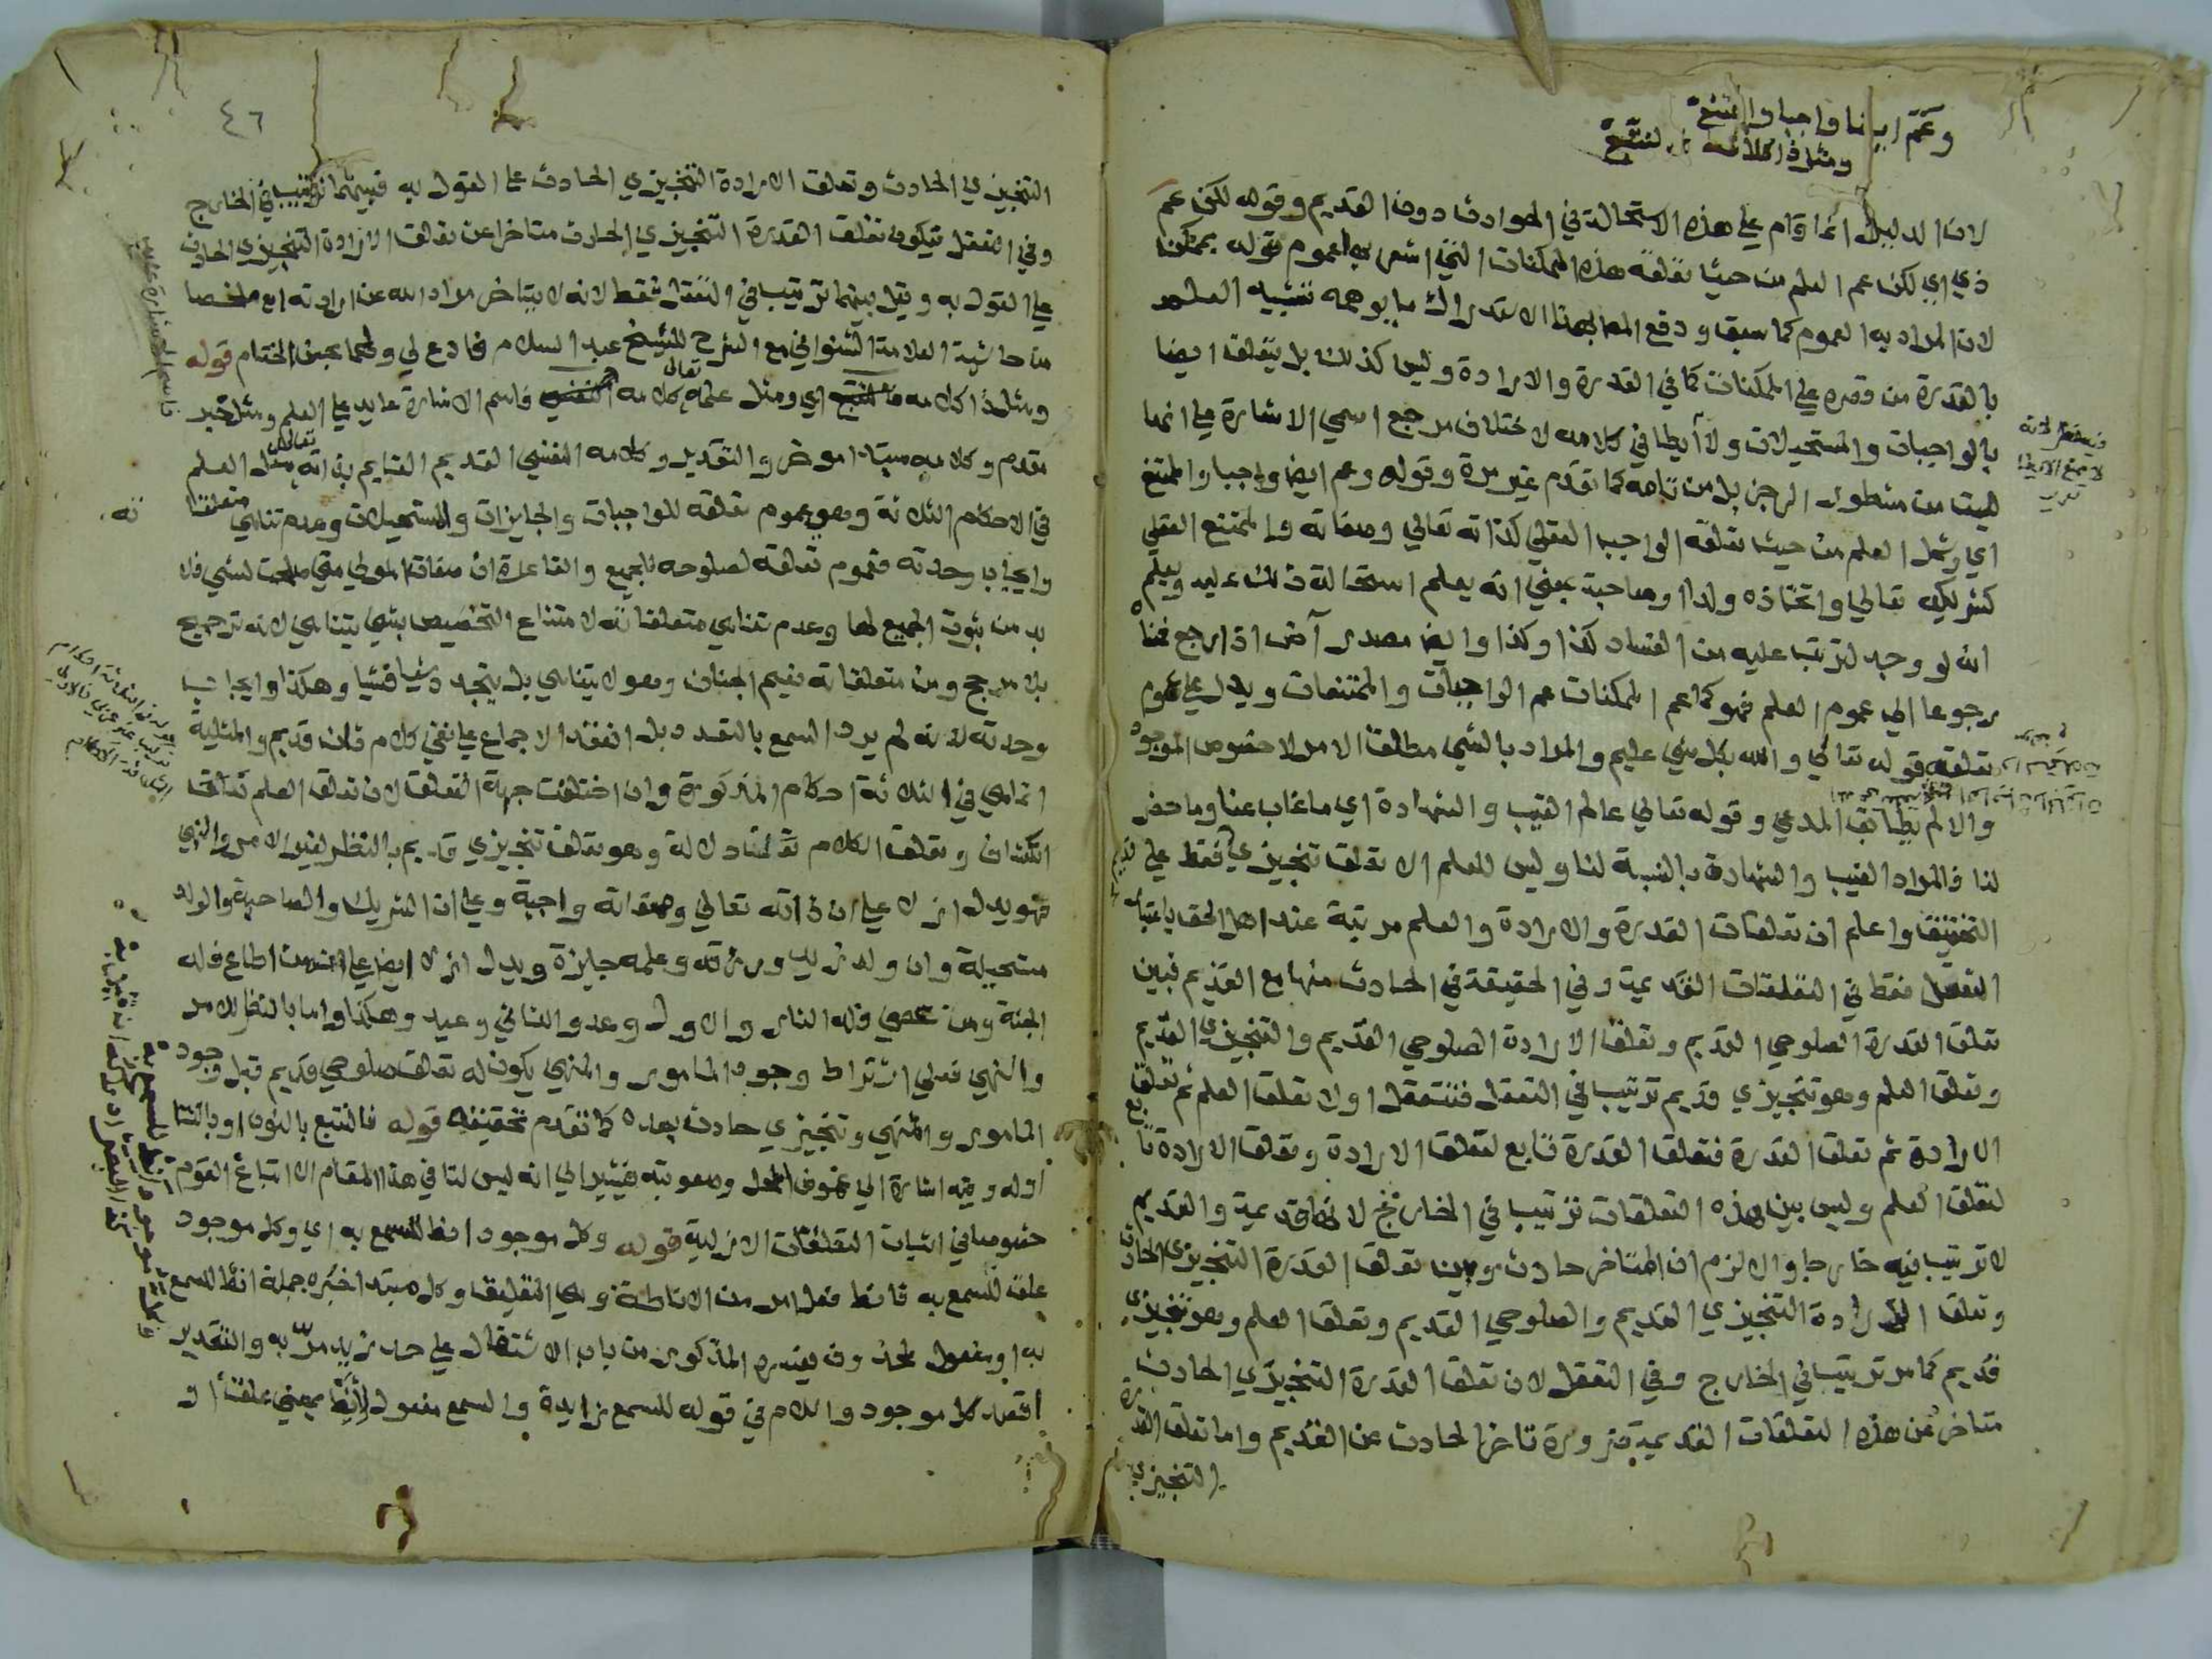 وعم ايضا واجبا والممتنع
ومثل ذا كلامه فلنتبع
لان الدليل انما قام على هذه الاستحالة في الحوادث دون القديم وقوله لكن عم
ذي اي لكن عم العلم من حيث تعلقه هذه الممكنات التي اشعر بها عموم قوله بممكن
لان المراد به العموم كما سبق ودفع المص بهذا الاستدراك ما يوهمه تشبيه العلم
بالقدرة من قصره على الممكنات كما في القدرة والارادة وليس كذلك بل يتعلق ايضا
بالواجبات والمستحيلات ولا ايطا في كلامه لاختلاف مرجع اسمي الاشارة على انها
ليست من مشطور الرجز بل من تامه كما تقدم غير مرة وقوله وعم ايضا واجبا والممتنع
اي وشمل العلم من حيث تعلقه الواجب العقلي كذاته تعالى وصفاته والممتنع العقلي
كشريكه تعالي واتخاذه ولدا وصاحبة بمعني انه يعلم استحالة ذلك عليه ويعلم
انه لو وجد لترتب عليه من الفساد كذا وكذا وايضا مصدر آض اذا رجع فمعناه
رجوعا الي عموم العلم فهو كما عم الممكنات عم الواجبات والممتنعات ويدل على عموم
تعلقه قوله تعالي والله بكل شي عليم والمراد بالشي مطلق الامر لا خصوص الموجود
والا لم يطابق المدعي وقوله تعالي عالم الغيب والشهادة اي ما غاب عنا وما حضر
لنا فالمراد الغيب والشهادة بالنسبة لنا وليس للعلم الا تعلق تنجيزي فقط على
التحقيق واعلم ان تعلقات القدرة والارادة والعلم مرتبة عند اهل الحق باعتبار
التعقل فقط في التعلقات القديمة وفي الحقيقة في الحادث منها مع القديم فبين
تعلق القدرة الصلوحي القديم وتعلق الارادة الصلوحي القديم والتنجيزي القديم
وتعلق العلم وهو تنجيزي قديم ترتيب في التعقل فنتعقل اولا تعلق العلم ثم تعلق
الارادة ثم تعلق القدرة فتعلق القدرة تابع لتعلق الارادة وتعلق الارادة تابع
لتعلق العلم وليس بين هذه التعلقات ترتيب في الخارج لانها قديمة والقديم
لا ترتيب فيه خارجا والا لزم ان المتاخر حادث وبين تعلق القدرة التنجيزي الحادث
وتعلق الارادة التنجيزي القديم والصلوحي القديم وتعلق العلم وهو تنجيزي
قديم كما مر ترتيب في الخارج وفي التعقل لان تعلق القدرة التنجيزي الحادث
متاخر عن هذه التعلقات القديمة ضرورة تاخر الحادث عن القديم واما تعلق القدرة
التنجيزي
فيه نظر لانه
لا يمنع الايطا
٤٦
التنجيزي الحادث وتعلق الارادة التنجيزي الحادث على القول به فبينهما ترتيب في الخارج
وفي التعقل فيكون تعلق القدرة التنجيزي الحادث متاخرا عن تعلق الارادة التنجيزي الحادث
على القول به وقيل بينهما ترتيب في التعقل فقط لانه لا يتاخر مراد الله عن ارادته اه ملخصا
من حاشية العلامة الشنواني مع الشرح للشيخ عبد السلام فادع لي ولهما بحسن الختام قوله
ومثل ذا كلامه فلنتبع اي ومثل علمه تعالى كلامه النفسي فاسم الاشارة عايد على العلم ومثل خبر
مقدم وكلامه مبتدا موخر والتقدير وكلامه النفسي القديم القايم بذاته تعالى مثل العلم
في الاحكام الثلاثة وهو عموم تعلقه للواجبات والجايزات والمستحيلات وعدم تناهي متعلقاته
وايجاب وحدته فعموم تعلقه لصلوحه للجميع والقاعدة ان صفات المولى متى صلحت لشي فلا
بد من ثبوت الجميع لها وعدم تناهي متعلقاته لامتناع التخصيص بشي يتناهي لانه ترجيح
بلا مرجح ومن متعلقاته نعيم الجنان وهو لا يتناهي بل يتجدد شيا فشيا وهكذا وايجاب
وحدته لانه لم يرد السمع بالتعدد بل انعقد الاجماع على نفي كلام ثان قديم والمثلية
انما هي في الثلاثة احكام المذكورة وان اختلفت جهة التعلق لان تعلق العلم تعلق
انكشاف وتعلق الكلام تعلق دلالة وهو تعلق تنجيزي قديم بالنظر لغير الامر والنهي
فهو يدل ازلا على ان ذاته تعالي وصفاته واجبة وعلى ان الشريك والصاحبة والولد
مستحيلة وان ولد زيد ورزقه وعلمه جايزة ويدل ازلا ايضا على ان من اطاع فله
الجنة ومن عصي فله النار والاول وعد والثاني وعيد وهكذا واما بالنظر للامر
والنهي فعلي اشتراط وجود المامور والمنهي يكون له تعلق صلوحي قديم قبل وجود
المامور والمنهي وتنجيزي حادث بعده كما تقدم تحقيقه قوله فلنتبع بالنون او بالتا
اوله وفيه اشارة الي غموض المحل وصعوبته فيشير الي انه ليس لنا في هذا المقام الا اتباع القوم
خصوصا في اثبات التعلقات الازلية قوله وكل موجود انط للسمع به اي وكل موجود
علق للسمع به فانط فعل امر من الاناطة وهي التعليق وكل مبتدا خبره جملة انط للسمع
به او مفعول لمحذوف يفسره المذكور من باب الاشتغال على حد زيد مر به والتقدير
اقصد كل موجود واللام في قوله للسمع زايدة والسمع مفعول لانط بمعني علق او